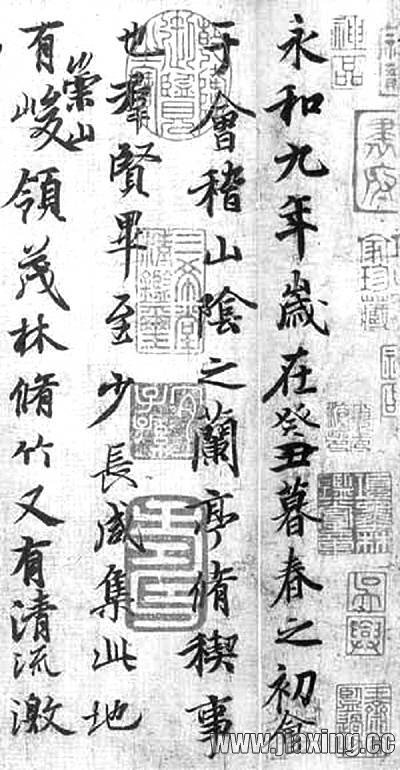 神品
家珍藏
永和九年歲在癸丑暮春之初會
于會稽山陰之蘭亭脩稧事
也羣賢畢至少長咸集此地
有崇山峻領茂林脩竹又有清流激
三希堂精鑑璽
宜子孫
www.jiaxing.cc